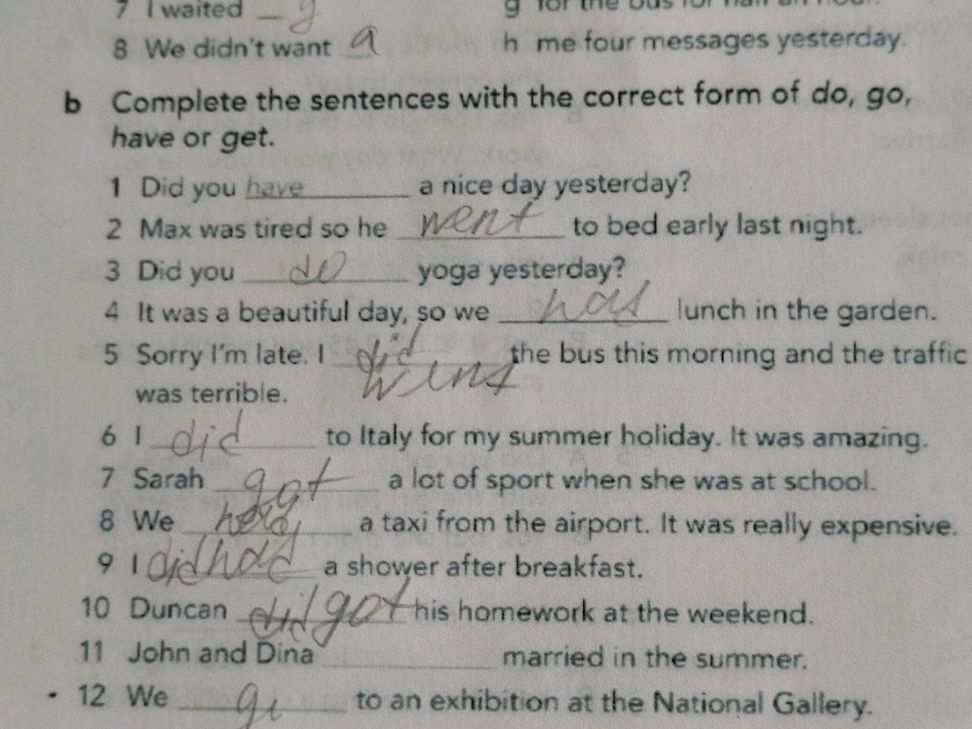 7 I waited g
g for the bus for half an hour.
8 We didn't want a
h me four messages yesterday.
b Complete the sentences with the correct form of do, go,
have or get.
1 Did you have a nice day yesterday?
2 Max was tired so he went to bed early last night.
3 Did you do yoga yesterday?
4 It was a beautiful day, so we had lunch in the garden.
5 Sorry I'm late. I did the bus this morning and the traffic
went
was terrible.
6 I did to Italy for my summer holiday. It was amazing.
7 Sarah got a lot of sport when she was at school.
8 We a taxi from the airport. It was really expensive.
9 I did had a shower after breakfast.
10 Duncan did got his homework at the weekend.
11 John and Dina married in the summer.
12 We to an exhibition at the National Gallery.